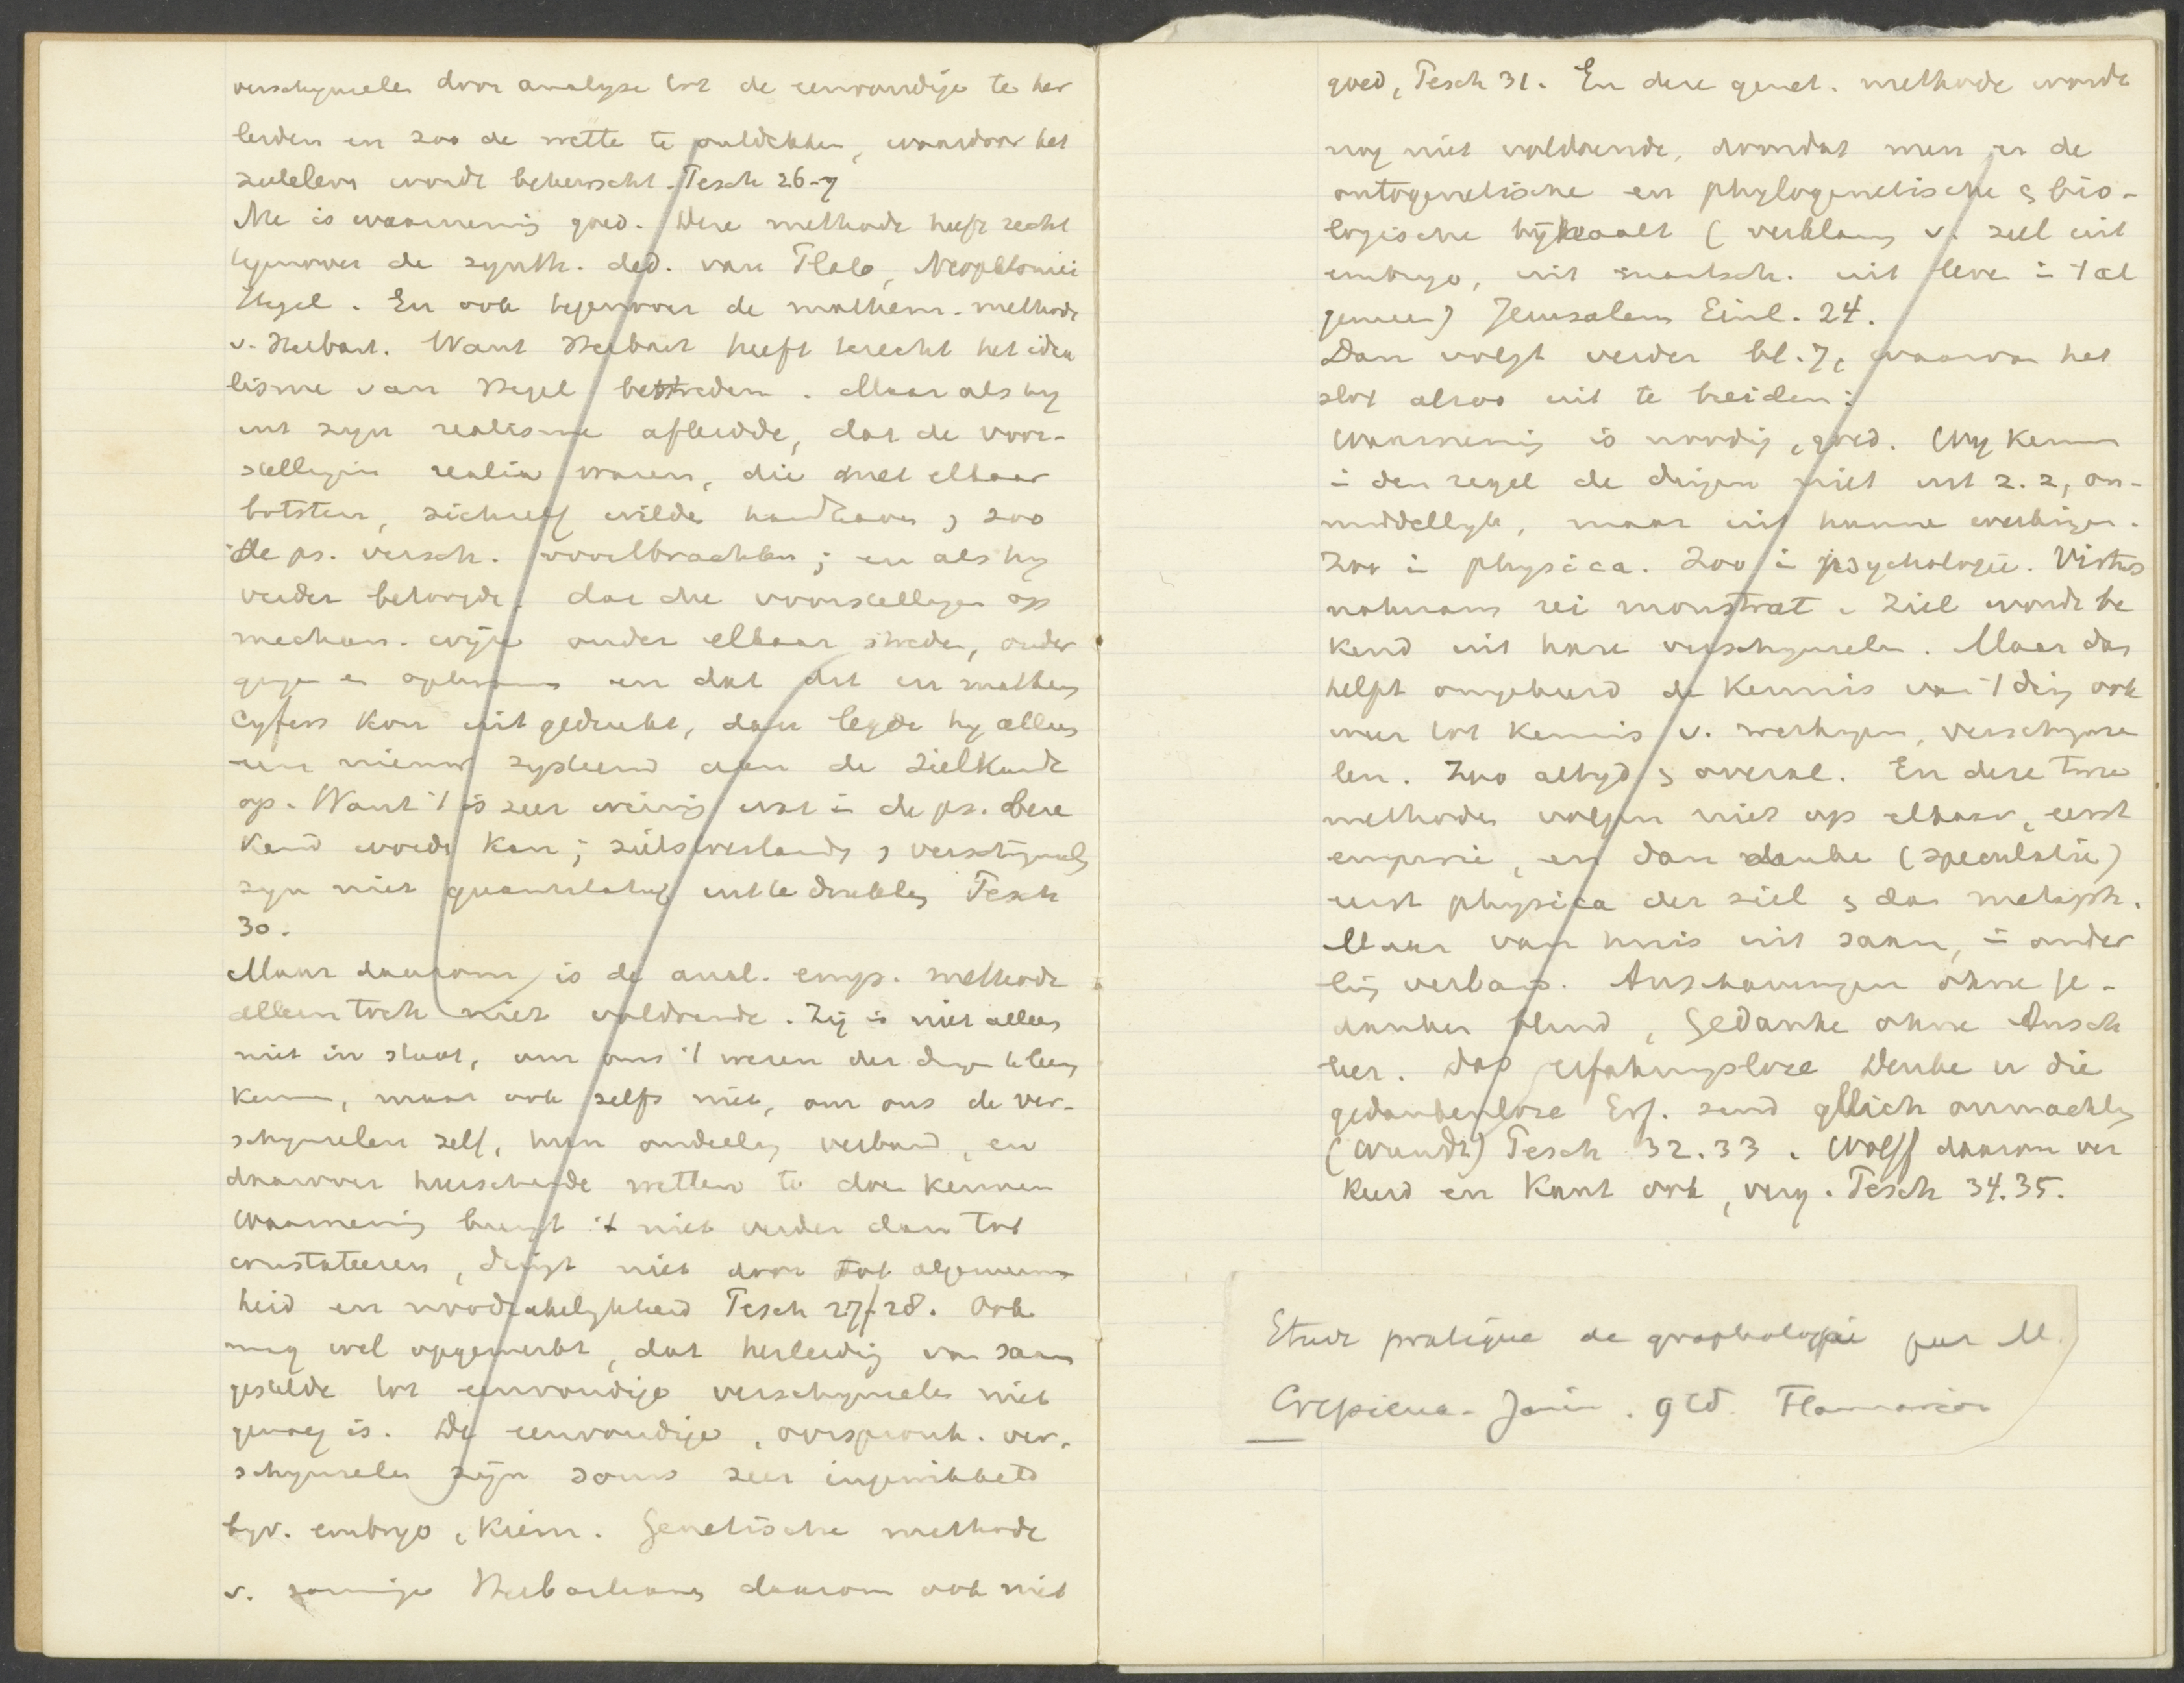 verschynselen door analyse tot de eenvoudige te her
leiden en zoo de wette te ontdekken, waardoor het
zieleleven wordt beheerscht. Tesch 26-7
Nu is waarneming goed. Deze methode heeft recht
tegenover de synth. ded. van Plato, Neoplatonici
Hegel. En ook tegenover de mathem. methode
v. Herbart. Want Herbart heeft terecht het idea
lisme van Hegel bestreden. Maar als hy
uit zyn realisme afleidde, dat de voor-
stellingen realia waren, die met elkaar
botsten, zichzelf wilde handhaven, zoo
de ps. versch. voortbrachten; en als hy
verder betoogde, dat die voorstellingen op
mechan. wijze onder elkaar streden, onder
gingen en opkwamen en dat dit in mathem
cyfers kon uitgedrukt, dan legde hy alleen
een nieuw systeem aan de zielkunde
op. Want 't is zeer weinig wat in de ps. bere
kend worde kan; zielstoestanden, verschijnsels
zyn niet quantitatief uit te drukken Tesch
30.
Maar daarom is de anal. emp. methode
alleen toch niet voldoende. Zij is niet alleen
niet in staat, om ons 't wezen der dingen te leeren
kennen, maar ook zelfs niet, om ons de ver-
schynselen zelf, hun onderling verband, en
daarover heerschende wetten te doen kennen
Waarneming brengt 't niet verder dan tot
constateeren, dringt niet door tot algemeen
heid en noodzakelykheid Tesch 27/28. Ook
mag wel opgemerkt, dat herleiding van saam
gestelde tot eenvoudige verschynselen niet
genoeg is. De eenvoudige, oorspronk. ver-
schynselen zijn soms zeer ingewikkeld
byv. embryo, kiem. Genetische methode
v. sommige Herbartianen daarom ook niet
goed, Tesch 31. En deze genet. methode wordt
nog niet voldoende, doordat men er de
ontogenetische en phylogenetische & bio-
logische bijhaalt (verklaring v. ziel uit
embryo, uit maatsch. uit leven in 't al
gemeen) Jerusalem Einl. 24.
Dan volgt verder bl. 7, waarvan het
slot alzoo uit te breiden:
Waarneming is noodig, goed. Wy kennen
in den regel de dingen niet uit z. z, on-
middellyk, maar uit hunne werkingen.
Zoo in physica. Zoo in psychologie. Virtus
naturam rei monstrat. Ziel wordt be
kend uit hare verschynselen. Maar dan
helpt omgekeerd de kennis van 't ding ook
weer tot kennis v. werkingen, verschynse
len. Zoo altyd & overal. En deze twee
methoden volgen niet op elkaar, eerst
empirie, en dan denke (speculatie)
eerst physica der ziel & dan metaph.
Maar van huis uit saam, in onder
ling verband. Anschauungen ohne Ge-
danken blind, Gedanke ohne Ansch
leer. Das erfahrungslose Denke u die
gedankenlose Erf. sind gleich onmachtig
(Wundt) Tesch 32.33. Wolff daarom ver
keerd en Kant ook, verg. Tesch 34.35.
Etude pratique de graphologie par M.
Crepieux-Jamin. 9 ed Flammarion